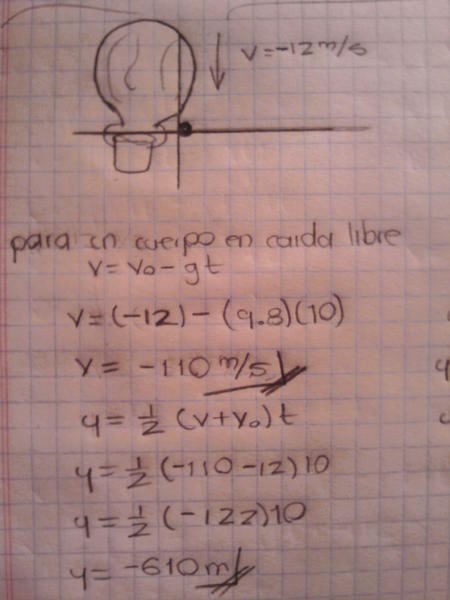 v = -12 m/s
para un cuerpo en caida libre
v = v₀ - gt
v = (-12) - (9.8)(10)
v = -110 m/s
y = 1/2 (v + v₀) t
y = 1/2 (-110 - 12) 10
y = 1/2 (-122) 10
y = -610 m